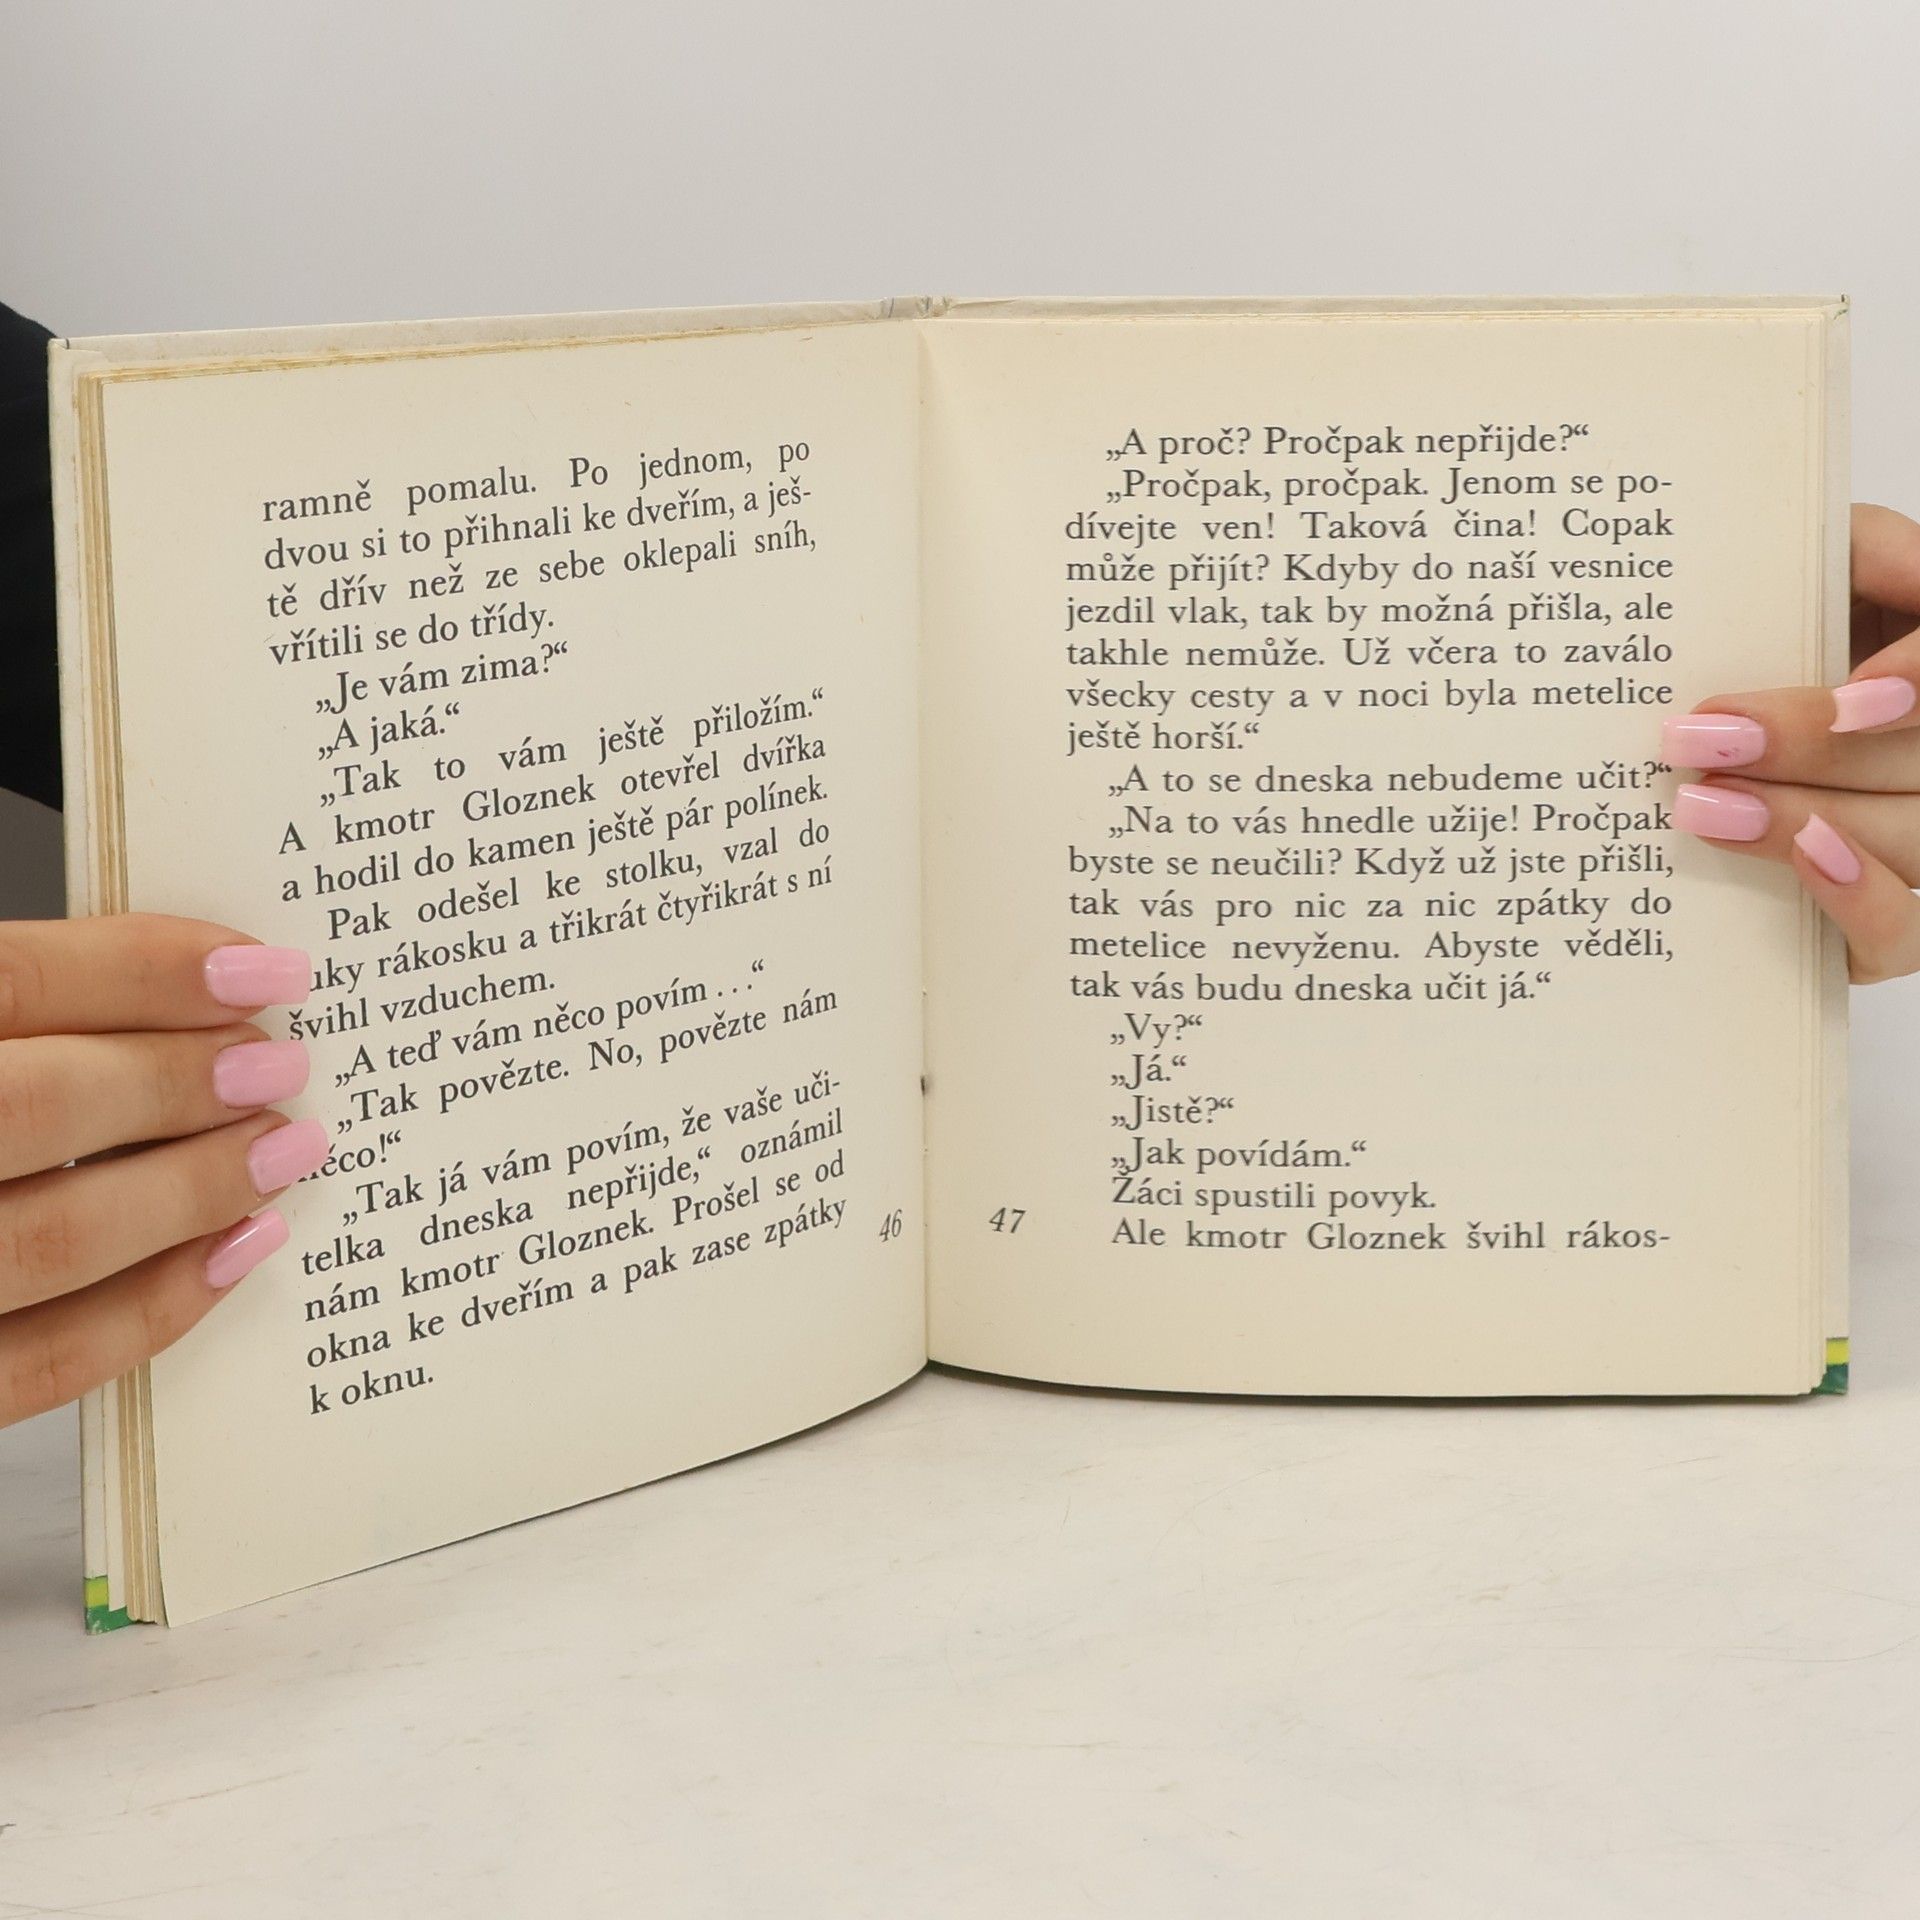 ramně pomalu. Po jednom, po
dvou si to přihnali ke dveřím, a ješ-
tě dřív než ze sebe oklepali sníh,
vřítili se do třídy.
„Je vám zima?“
„A jaká.“
„Tak to vám ještě přiložím.“
A kmotr Gloznek otevřel dvířka
a hodil do kamen ještě pár polínek.
Pak odešel ke stolku, vzal do
uky rákosku a třikrát čtyřikrát s ní
švihl vzduchem.
„A teď vám něco povím . . .“
„Tak povězte. No, povězte nám
něco!“
„Tak já vám povím, že vaše uči-
telka dneska nepřijde,“ oznámil
nám kmotr Gloznek. Prošel se od
okna ke dveřím a pak zase zpátky
k oknu.
46
„A proč? Pročpak nepřijde?“
„Pročpak, pročpak. Jenom se po-
dívejte ven! Taková čina! Copak
může přijít? Kdyby do naší vesnice
jezdil vlak, tak by možná přišla, ale
takhle nemůže. Už včera to zaválo
všecky cesty a v noci byla metelice
ještě horší.“
„A to se dneska nebudeme učit?“
„Na to vás hnedle užije! Pročpak
byste se neučili? Když už jste přišli,
tak vás pro nic za nic zpátky do
metelice nevyženu. Abyste věděli,
tak vás budu dneska učit já.“
„Vy?“
„Já.“
„Jistě?“
„Jak povídám.“
Žáci spustili povyk.
Ale kmotr Gloznek švihl rákos-
47